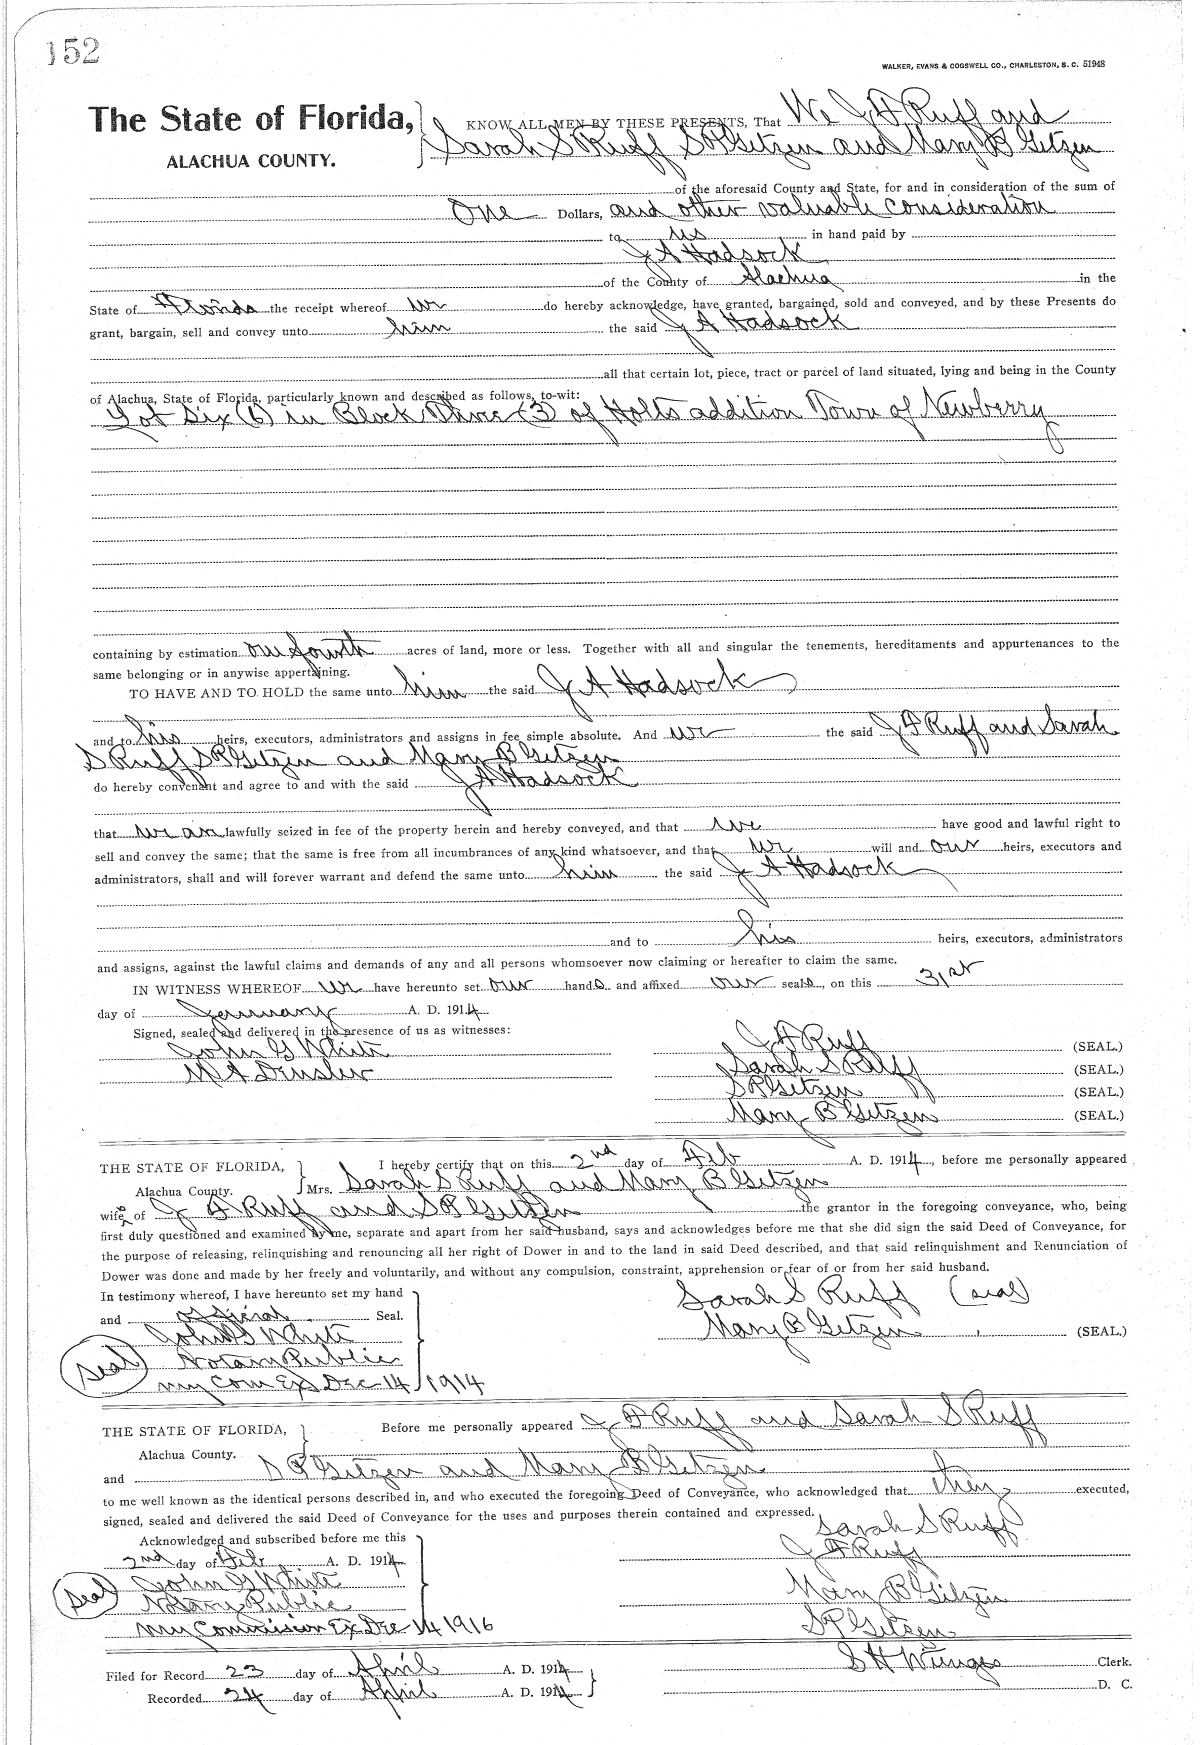 152
WALKER, EVANS & COGSWELL CO., CHARLESTON, S. C. 51948
The State of Florida, KNOW ALL MEN BY THESE PRESENTS, That We J F Ruff and
ALACHUA COUNTY. Sarah S Ruff S P Getzen and Mary B Getzen
of the aforesaid County and State, for and in consideration of the sum of
One Dollars, and other valuable consideration
to us in hand paid by
J A Hadsock
of the County of Alachua in the
State of Florida the receipt whereof we do hereby acknowledge, have granted, bargained, sold and conveyed, and by these Presents do
grant, bargain, sell and convey unto him the said J A Hadsock
all that certain lot, piece, tract or parcel of land situated, lying and being in the County
of Alachua, State of Florida, particularly known and described as follows, to-wit:
Lot Six (6) in Block Three (3) of Holts addition Town of Newberry
containing by estimation one fourth acres of land, more or less. Together with all and singular the tenements, hereditaments and appurtenances to the
same belonging or in anywise appertaining.
TO HAVE AND TO HOLD the same unto him the said J A Hadsock
and to his heirs, executors, administrators and assigns in fee simple absolute. And we the said J F Ruff and Sarah
S Ruff S P Getzen and Mary B Getzen
do hereby convenant and agree to and with the said J A Hadsock
that we are lawfully seized in fee of the property herein and hereby conveyed, and that we have good and lawful right to
sell and convey the same; that the same is free from all incumbrances of any kind whatsoever, and that we will and our heirs, executors and
administrators, shall and will forever warrant and defend the same unto him the said J A Hadsock
and to his heirs, executors, administrators
and assigns, against the lawful claims and demands of any and all persons whomsoever now claiming or hereafter to claim the same.
IN WITNESS WHEREOF we have hereunto set our hands and affixed our seals, on this 31st
day of January A. D. 1914
Signed, sealed and delivered in the presence of us as witnesses:
John G White J F Ruff (SEAL.)
M A Sarah S Ruff (SEAL.)
S P Getzen (SEAL.)
Mary B Getzen (SEAL.)
THE STATE OF FLORIDA, I hereby certify that on this 2nd day of Feb A. D. 1914, before me personally appeared
Alachua County. Mrs. Sarah S Ruff and Mary B Getzen
wifes of J F Ruff and S P Getzen the grantor in the foregoing conveyance, who, being
first duly questioned and examined by me, separate and apart from her said husband, says and acknowledges before me that she did sign the said Deed of Conveyance, for
the purpose of releasing, relinquishing and renouncing all her right of Dower in and to the land in said Deed described, and that said relinquishment and Renunciation of
Dower was done and made by her freely and voluntarily, and without any compulsion, constraint, apprehension or fear of or from her said husband.
In testimony whereof, I have hereunto set my hand
and official Seal. Sarah S Ruff (seal)
John G White Mary B Getzen (SEAL.)
(seal) Notary Public
my Com Exs Dec 14 1914
THE STATE OF FLORIDA, Before me personally appeared J F Ruff and Sarah S Ruff
Alachua County.
and S P Getzen and Mary B Getzen
to me well known as the identical persons described in, and who executed the foregoing Deed of Conveyance, who acknowledged that they executed,
signed, sealed and delivered the said Deed of Conveyance for the uses and purposes therein contained and expressed.
Acknowledged and subscribed before me this Sarah S Ruff
2nd day of Feb A. D. 1914 J F Ruff
(seal) John G White Mary B Getzen
Notary Public
my Commission Ex Dec 14 1916 S P Getzen
Filed for Record 23 day of April A. D. 1914 S H Wienges Clerk.
Recorded 24 day of April A. D. 1914 D. C.